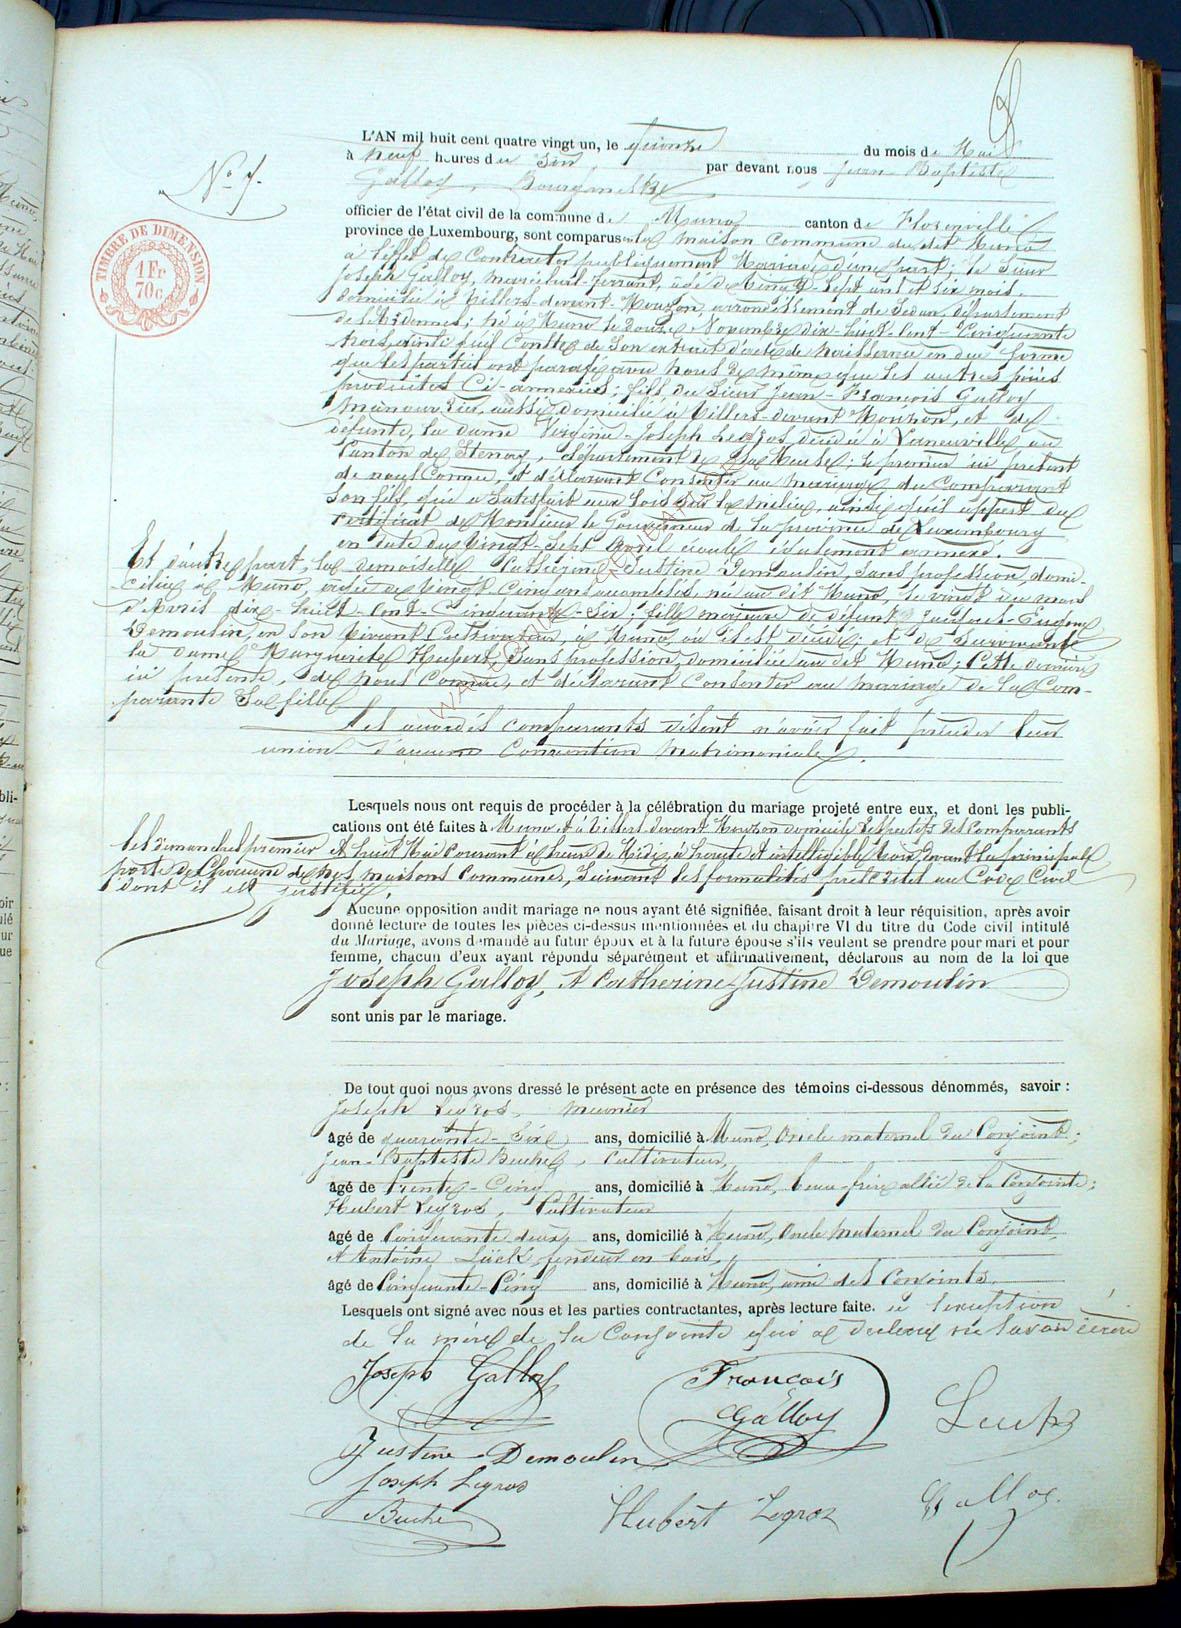 N° 7.
TIMBRE DE DIMENSION
1 Fr
70c
L'AN mil huit cent quatre vingt un, le quinze du mois de Mai
à neuf heures du soir par devant nous Jean-Baptiste
Galloy, Bourgmestre
officier de l'état civil de la commune de Muno canton de Florenville
province de Luxembourg, sont comparus en la maison Commune du dit Muno
à l'effet de Contracter publiquement Mariage, d'une part, le Sieur
Joseph Galloy, maréchal-ferrant, âgé de vingt-sept ans et six mois,
domicilié à Villers-devant-Mouzon, arrondissement de Sedan, département
des Ardennes; né à Muno le douze Novembre dix-huit-Cent-Cinquante
trois, ainsi qu'il Conste de Son extrait d'acte de Naissance en due forme
que les parties ont parafé avec Nous de même que les autres pièces
produites Ci-annexées; fils du Sieur Jean-François Galloy
Manouvrier, aussi domicilié à Villers-devant Mouzon, et de
défunte, la dame Virginie-Joseph Legros, décédée à Laneuville, au
Canton de Stenay, département de la Meuse; le premier ici présent
de nous Connu, et déclarant Consentir au mariage du Comparant
Son fils, qui a Satisfait aux lois sur la milice, ainsi qu'il appert du
certificat de Monsieur le Gouverneur de la province de Luxembourg
en date du Vingt-Sept Avril écoulé, également annexé.
Et d'autre part, la demoiselle Catherine Justine Demoulin, Sans profession, domi-
ciliée à Muno, âgée de Vingt Cinq ans accomplis, née au dit Muno le vingt du mois
d'Avril dix-huit-Cent-Cinquante-Six; fille majeure de défunt Jacques-Eugène
Demoulin, en Son vivant Cultivateur, à Muno où il est décédé; et de Survivante
la dame Marguerite Hubert Sans profession, domiciliée au dit Muno; Cette dernière
ici présente, de nous Connue, et déclarant Consentir au mariage de la Com-
parante Sa fille
Les accordés comparants disent n'avoir fait précéder leur
union d'aucune Convention Matrimoniale.
Lesquels nous ont requis de procéder à la célébration du mariage projeté entre eux, et dont les publi-
cations ont été faites à Muno et à Villers-devant Mouzon domicile respectifs des Comparants
les dimanches premier et huit Mai Courant à l'heure de Midi, à haute et intelligible voix devant la principale
porte de chacune de nos maisons Communes, Suivant les formalités prescrites au Code Civil
dont il est justifié.
Aucune opposition audit mariage ne nous ayant été signifiée, faisant droit à leur réquisition, après avoir
donné lecture de toutes les pièces ci-dessus mentionnées et du chapitre VI du titre du Code civil intitulé
du Mariage, avons demandé au futur époux et à la future épouse s'ils veulent se prendre pour mari et pour
femme, chacun d'eux ayant répondu séparément et affirmativement, déclarons au nom de la loi que
Joseph Galloy, et Catherine Justine Demoulin
sont unis par le mariage.
De tout quoi nous avons dressé le présent acte en présence des témoins ci-dessous dénommés, savoir :
Joseph Legros, meunier
âgé de quarante-Six ans, domicilié à Muno, Oncle maternel du Conjoint;
Jean-Baptiste Buche, Cultivateur,
âgé de trente-Cinq ans, domicilié à Muno, beau-frère allié de la Conjointe;
Hubert Legros, Cultivateur
âgé de Cinquante deux ans, domicilié à Muno, Oncle Maternel du Conjoint,
et Antoine Lück, fendeur en bois,
âgé de Cinquante-Cinq ans, domicilié à Muno, ami des Conjoints.
Lesquels ont signé avec nous et les parties contractantes, après lecture faite. à l'exception
de la mère de la Conjointe qui a déclaré ne savoir écrire
Joseph Galloy
François
Galloy
Justine Demoulin
Joseph Legros
Buche
Hubert Legros
Galloy.